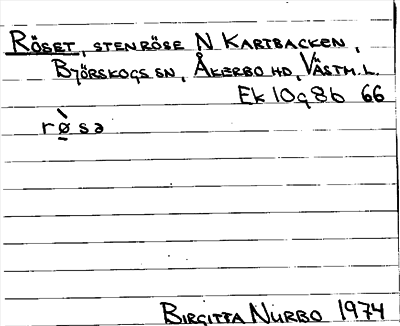 RÖSET, STENRÖSE N KARTBACKEN,
BJÖRSKOGS SN, ÅKERBO HD, VÄSTM. L.
Ek 10g8b 66
rø̱̀sa
BIRGITTA NURBO 1974